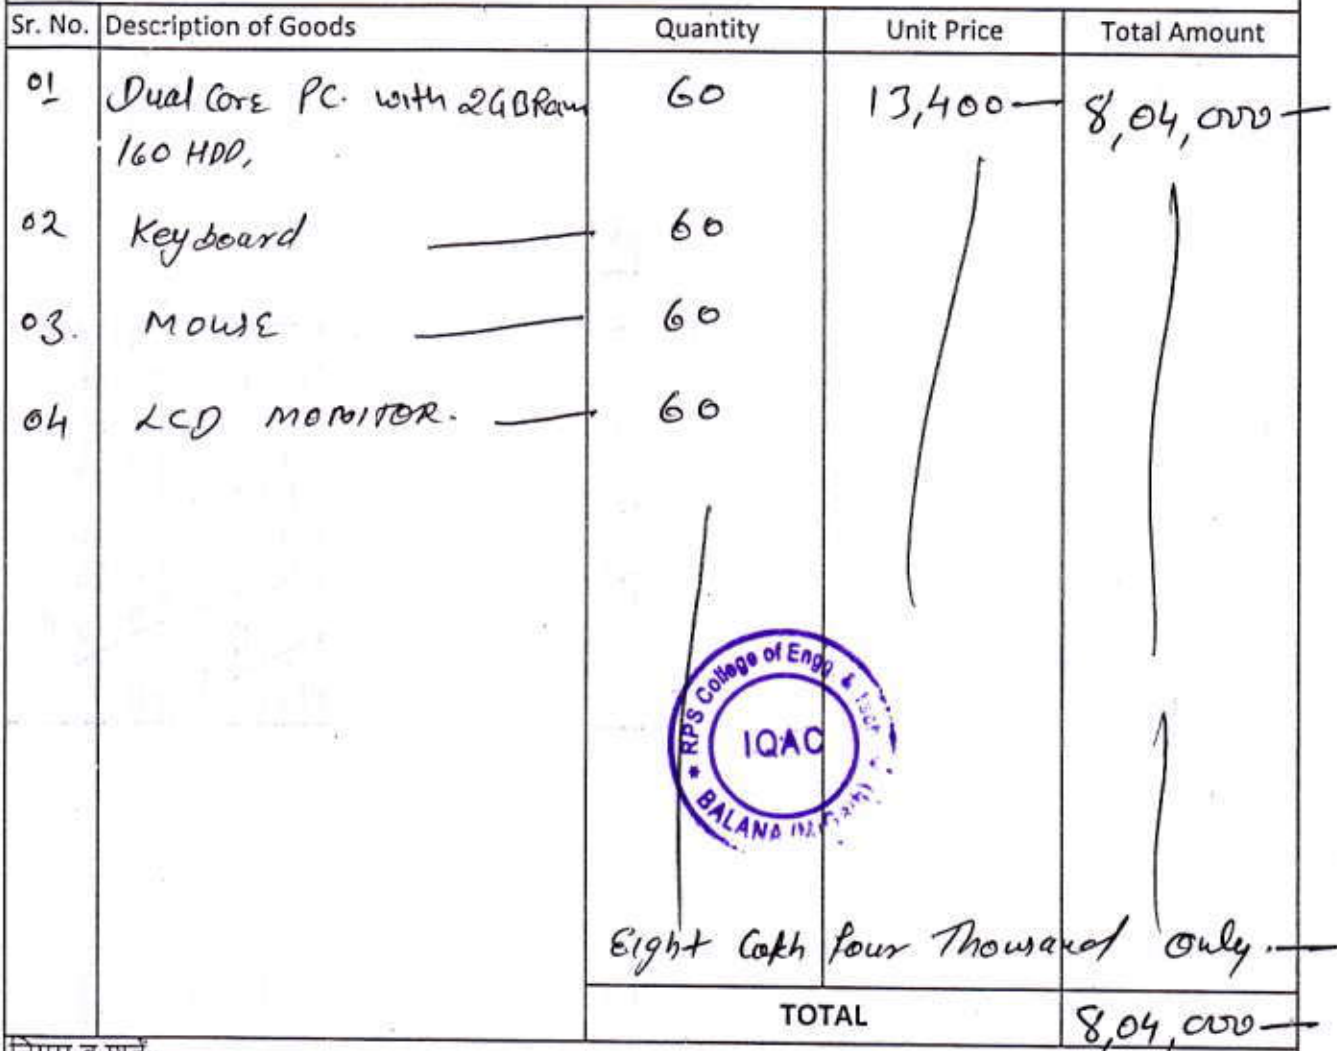 Sr. No. Description of Goods Quantity Unit Price Total Amount
01 Dual Core PC. with 2GB Ram 60 13,400— 8,04,000—
160 HDD,
02 Keyboard — 60
03. Mouse — 60
04 LCD MONITOR. — 60
RPS College of Engg. &
IQAC
BALANA
Eight Lakh four Thousand Only.—
TOTAL 8,04,000—